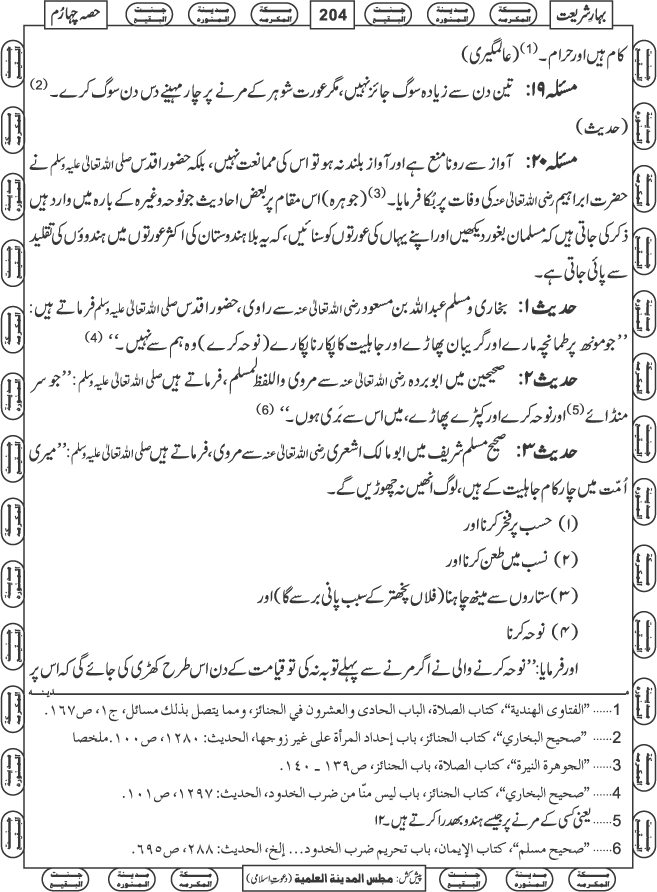 بہارِ شریعت 204 حصہ چہارم
کام ہیں اور حرام۔ (1) (عالمگیری)
مسئلہ ۱۹: تین دن سے زیادہ سوگ جائز نہیں، مگر عورت شوہر کے مرنے پر چار مہینے دس دن سوگ کرے۔ (2)
(حدیث)
مسئلہ ۲۰: آواز سے رونا منع ہے اور آواز بلند نہ ہو تو اس کی ممانعت نہیں، بلکہ حضور اقدس صلی اللہ تعالیٰ علیہ وسلم نے
حضرت ابراہیم رضی اللہ تعالیٰ عنہ کی وفات پر بُکا فرمایا۔ (3) (جوہرہ) اس مقام پر بعض احادیث جو نوحہ وغیرہ کے بارہ میں وارد ہیں
ذکر کی جاتی ہیں کہ مسلمان بغور دیکھیں اور اپنے یہاں کی عورتوں کو سنائیں، کہ یہ بلا ہندوستان کی اکثر عورتوں میں ہندوؤں کی تقلید
سے پائی جاتی ہے۔
حدیث ۱: بخاری و مسلم عبداللہ بن مسعود رضی اللہ تعالیٰ عنہ سے راوی، حضور اقدس صلی اللہ تعالیٰ علیہ وسلم فرماتے ہیں:
’’جو مونھ پر طمانچہ مارے اور گریبان پھاڑے اور جاہلیت کا پکارنا پکارے (نوحہ کرے) وہ ہم سے نہیں۔‘‘ (4)
حدیث ۲: صحیحین میں ابو بردہ رضی اللہ تعالیٰ عنہ سے مروی واللفظ لمسلم، فرماتے ہیں صلی اللہ تعالیٰ علیہ وسلم: ’’جو سر
منڈائے (5) اور نوحہ کرے اور کپڑے پھاڑے، میں اس سے بَری ہوں۔‘‘ (6)
حدیث ۳: صحیح مسلم شریف میں ابو مالک اشعری رضی اللہ تعالیٰ عنہ سے مروی، فرماتے ہیں صلی اللہ تعالیٰ علیہ وسلم: ’’میری
اُمّت میں چار کام جاہلیت کے ہیں، لوگ انھیں نہ چھوڑیں گے۔
(۱) حسب پر فخر کرنا اور
(۲) نسب میں طعن کرنا اور
(۳) ستاروں سے مینھ چاہنا (فلاں نچھتر کے سبب پانی برسے گا) اور
(۴) نوحہ کرنا
اور فرمایا: ’’نوحہ کرنے والی نے اگر مرنے سے پہلے توبہ نہ کی تو قیامت کے دن اس طرح کھڑی کی جائے گی کہ اس پر
1...... "الفتاوى الهندية"، كتاب الصلاة، الباب الحادى والعشرون في الجنائز، ومما يتصل بذلك مسائل، ج١، ص١٦٧.
2...... "صحيح البخاري"، كتاب الجنائز، باب إحداد المرأة على غير زوجها، الحديث: ١٢٨٠، ص١٠٠. ملخصا
3...... "الجوهرة النيرة"، كتاب الصلاة، باب الجنائز، ص١٣٩ ـ ١٤٠.
4...... "صحيح البخاري"، كتاب الجنائز، باب ليس منّا من ضرب الخدود، الحديث: ١٢٩٧، ص١٠١.
5...... یعنی کسی کے مرنے پر جیسے ہندو بھدرا کرتے ہیں۔ ۱۲
6...... "صحيح مسلم"، كتاب الإيمان، باب تحريم ضرب الخدود... إلخ، الحديث: ٢٨٨، ص٦٩٥.
پیش کش: مجلس المدينة العلمية (دعوتِ اسلامی)